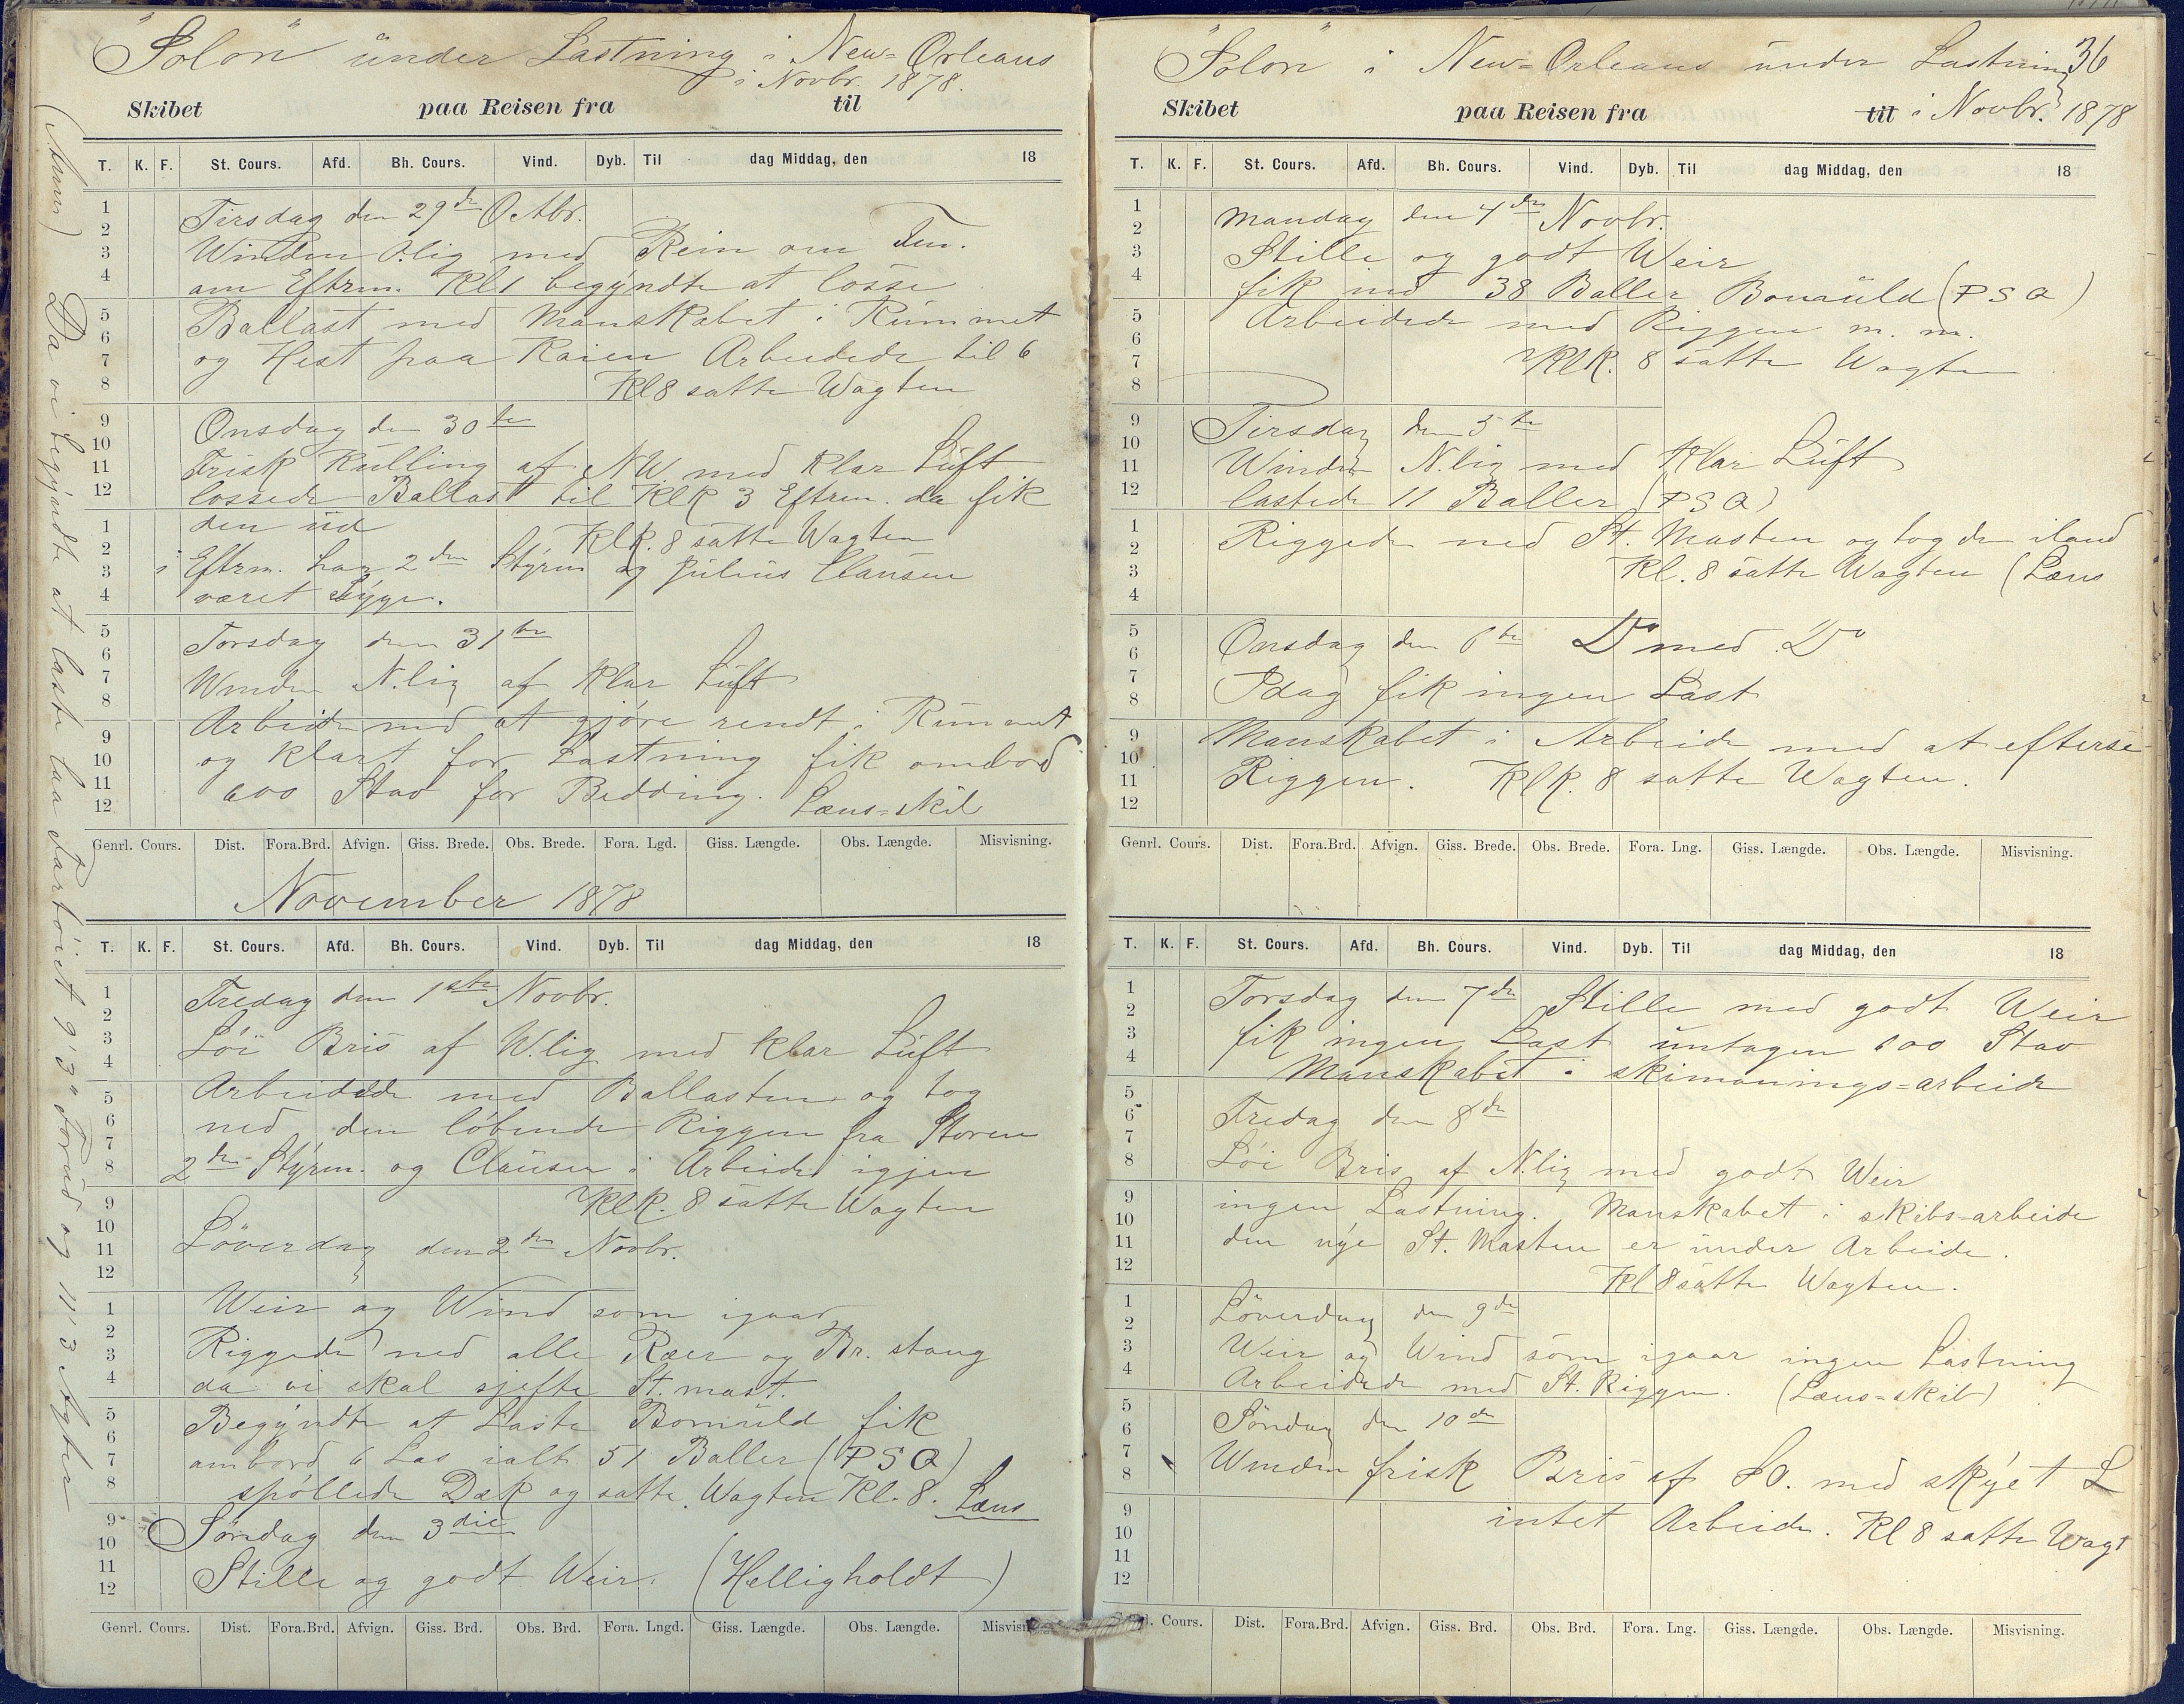 "Solon" under Lastning i New=Orleans
i Novbr. 1878.
Skibet paa Reisen fra til
T. K. F. St. Cours. Afd. Bh. Cours. Vind. Dyb. Til dag Middag, den 18
1
2
3
4
5
6
7
8
9
10
11
12
1
2
3
4
5
6
7
8
9
10
11
12
Tirsdag den 29de Octbr.
Winden Ø.lig med Rein om Fm.
om Eftrm. Kl 1 begyndte at losse
Ballast med Manskabet i Rummet
og Hest paa Kaien Arbeidede til 6
Kl 8 satte Wagten
Onsdag den 30te
Frisk Kulling af NW med klar Luft
lossede Ballast til Klk 3 Eftrm. da fik
den ud
Klk. 8 satte Wagten
i Eftrm. har 2den Styrm og Julius Clausen
været Syge.
Torsdag den 31te
Winden N.lig af klar Luft
Arbeide med at gjøre rendt i Rummet
og klart for Lastning fik ombord
600 Stav for Bedding. Læns=skib
Genrl. Cours. Dist. Fora.Brd. Afvign. Giss. Brede. Obs. Brede. Fora. Lgd. Giss. Længde. Obs. Længde. Misvisning.
November 1878
T. K. F. St. Cours. Afd. Bh. Cours. Vind. Dyb. Til dag Middag, den 18
1
2
3
4
5
6
7
8
9
10
11
12
1
2
3
4
5
6
7
8
9
10
11
12
Fredag den 1ste Novbr.
Löi Bris af W.lig med klar Luft
Arbeidede med Ballasten og tog
ned den löbende Riggen fra Storen
2den Styrm. og Clausen i Arbeide igjen
Klk. 8 satte Wagten
Löverdag den 2den Novbr.
Weir og Wind som igaar
Riggede ned alle Ræer og Br. stang
da vi skal sjefte St. mast.
Begyndte at Laste Bomuld fik
ombord 6 Las ialt 51 Baller (PSQ)
spöllede Dæk og satte Wagten Kl. 8. Læns
Söndag den 3die
Stille og godt Weir. (Helligholdt)
Genrl. Cours. Dist. Fora.Brd. Afvign. Giss. Brd. Obs. Brd. Fora. Lngd. Giss. Længde. Obs. Længde. Misvisn
Da vi begyndte at laste laa Fartöiet 9'3" Forud og 11'3 Agter
"Solon" i New=Orleans under Lastning 36
i Novbr. 1878
Skibet paa Reisen fra til
T. K. F. St. Cours. Afd. Bh. Cours. Vind. Dyb. Til dag Middag, den 18
1
2
3
4
5
6
7
8
9
10
11
12
1
2
3
4
5
6
7
8
9
10
11
12
Mandag den 4de Novbr.
Stille og godt Weir
fik ind 38 Baller Bomuld (PSQ)
Arbeidede med Riggen m. m.
Klk. 8 satte Wagten
Tirsdag den 5te
Winden N.lig med Klar Luft
lastede 11 Baller (PSQ)
Riggede ned St. Masten og tog den iland
Kl. 8 satte Wagten (Læns
Onsdag den 6te Do med Do
Idag fik ingen Last
Manskabet i Arbeide med at efterse
Riggen. Klk. 8 satte Wagten.
Genrl. Cours. Dist. Fora.Brd. Afvign. Giss. Brede. Obs. Brede. Fora. Lng. Giss. Længde. Obs. Længde. Misvisning.
T. K. F. St. Cours. Afd. Bh. Cours. Vind. Dyb. Til dag Middag, den 18
1
2
3
4
5
6
7
8
9
10
11
12
1
2
3
4
5
6
7
8
9
10
11
12
Torsdag den 7de Stille med godt Weir
fik ingen Last untagen 600 Stav
Manskabet i skimanings=arbeide
Fredag den 8de
Löi Bris af N.lig med godt Weir
ingen Lastning. Manskabet i skibs=arbeide
den nye St. Masten er under Arbeide.
Kl 8 satte Wagten.
Löverdag den 9de
Weir og Wind som igaar ingen Lastning
Arbeidede med St. Riggen. (Læns=skib)
Söndag den 10de
Winden frisk Bris af SO. med skyet L
intet Arbeide. Kl 8 satte Wagt
Cours. Dist. Fora.Brd. Afvign. Giss. Brd. Obs. Brd. Fora. Lng. Giss. Længde. Obs. Længde. Misvisning.